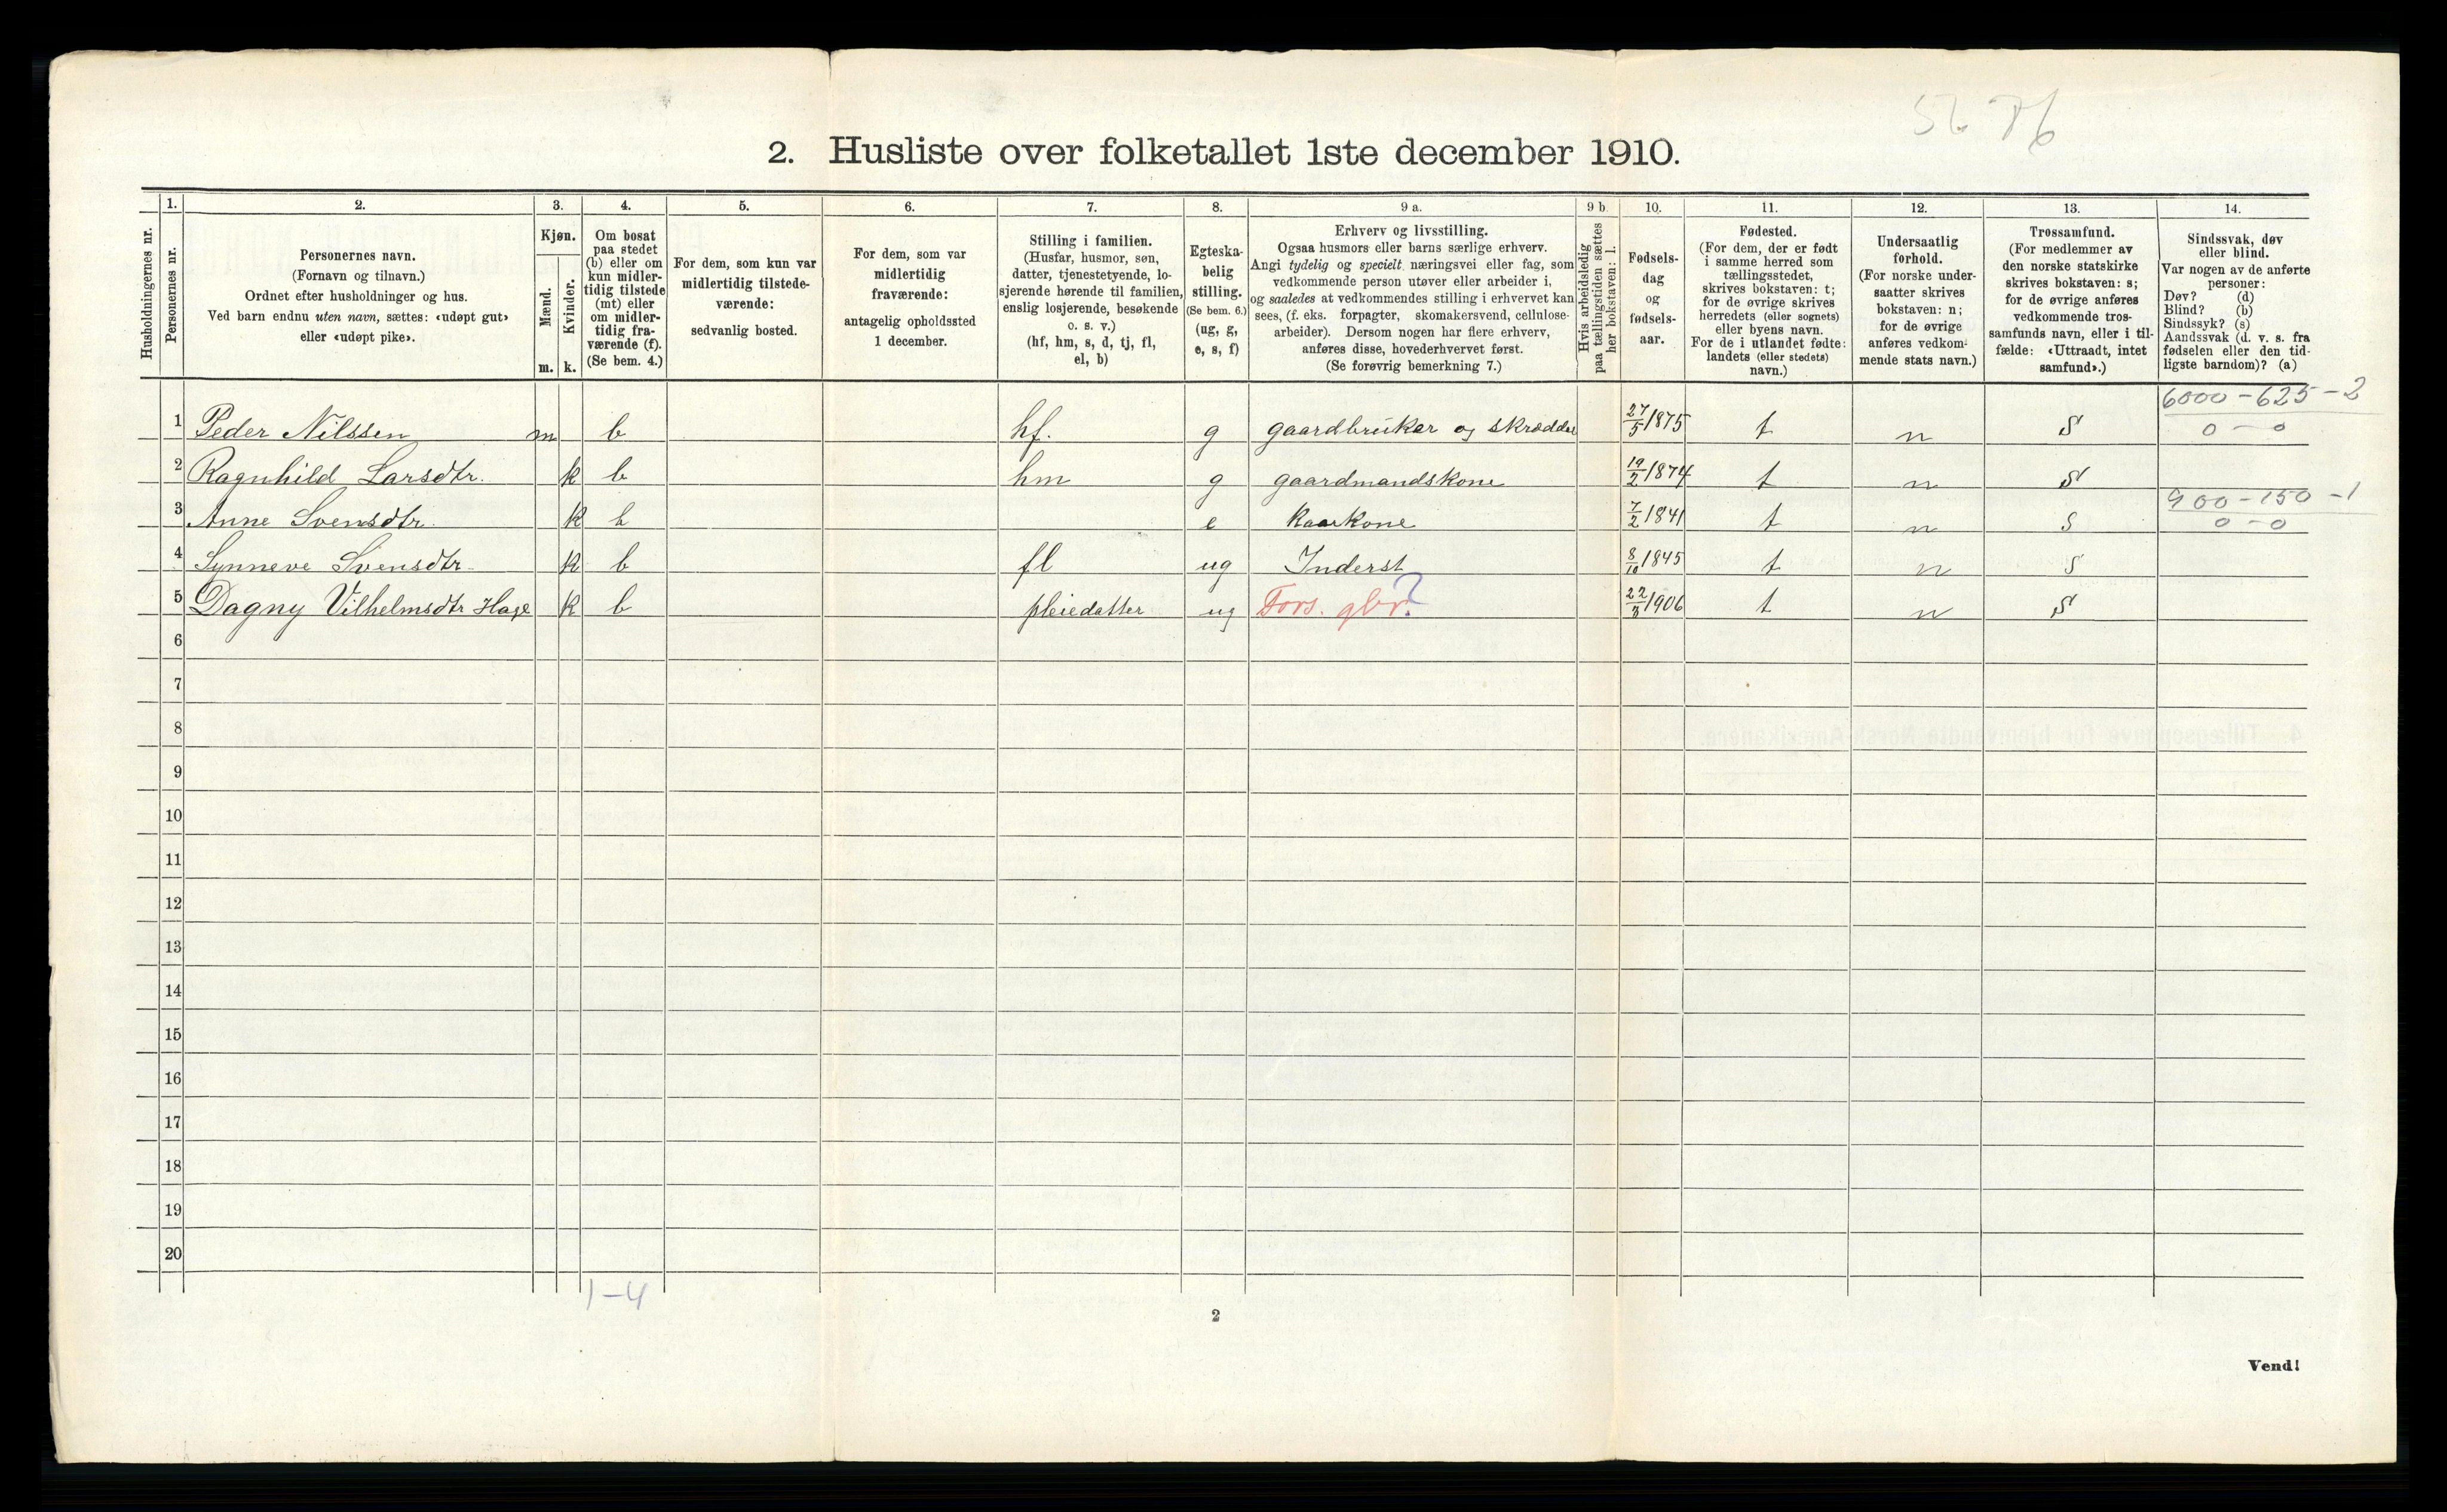 2. Husliste over folketallet 1ste december 1910.
Husholdningernes nr.
1.
Personernes nr.
2.
Personernes navn.
(Fornavn og tilnavn.)
Ordnet efter husholdninger og hus.
Ved barn endnu uten navn, sættes: «udøpt gut»
eller «udøpt pike».
3.
Kjøn.
Mænd.
Kvinder.
m.
k.
4.
Om bosat
paa stedet
(b) eller om
kun midler-
tidig tilstede
(mt) eller
om midler-
tidig fra-
værende (f).
(Se bem. 4.)
5.
For dem, som kun var
midlertidig tilstede-
værende:
sedvanlig bosted.
6.
For dem, som var
midlertidig
fraværende:
antagelig opholdssted
1 december.
7.
Stilling i familien.
(Husfar, husmor, søn,
datter, tjenestetyende, lo-
sjerende hørende til familien,
enslig losjerende, besøkende
o. s. v.)
(hf, hm, s, d, tj, fl,
el, b)
8.
Egteska-
belig
stilling.
(Se bem. 6.)
(ug, g,
e, s, f)
9 a.
Erhverv og livsstilling.
Ogsaa husmors eller barns særlige erhverv.
Angi tydelig og specielt næringsvei eller fag, som
vedkommende person utøver eller arbeider i,
og saaledes at vedkommendes stilling i erhvervet kan
sees, (f. eks. forpagter, skomakersvend, cellulose-
arbeider). Dersom nogen har flere erhverv,
anføres disse, hovederhvervet først.
(Se forøvrig bemerkning 7.)
9 b.
Hvis arbeidsledig
paa tællingstiden sættes
her bokstaven: l.
10.
Fødsels-
dag
og
fødsels-
aar.
11.
Fødested.
(For dem, der er født
i samme herred som
tællingsstedet,
skrives bokstaven: t;
for de øvrige skrives
herredets (eller sognets)
eller byens navn.
For de i utlandet fødte:
landets (eller stedets)
navn.)
12.
Undersaatlig
forhold.
(For norske under-
saatter skrives
bokstaven: n;
for de øvrige
anføres vedkom-
mende stats navn.)
13.
Trossamfund.
(For medlemmer av
den norske statskirke
skrives bokstaven: s;
for de øvrige anføres
vedkommende tros-
samfunds navn, eller i til-
fælde: «Uttraadt, intet
samfund».)
14.
Sindssvak, døv
eller blind.
Var nogen av de anførte
personer:
Døv? (d)
Blind? (b)
Sindssyk? (s)
Aandssvak (d. v. s. fra
fødselen eller den tid-
ligste barndom)? (a)
6000 - 625 - 2
1 Peder Nilssen m b hf. g gaardbruker og skrædder 27/5 1875 t n S 0 - 0
2 Ragnhild Larsdtr. k b hm g gaardmandskone 19/2 1874 t n S
900 - 150 - 1
3 Anne Svensdtr. k b e kaarkone 7/2 1841 t n S 0 - 0
4 Synneve Svensdtr. k b fl ug Inderst 8/10 1845 t n S
5 Dagny Vilhelmsdtr Hage k b pleiedatter ug Fors. gbr. ? 22/3 1906 t n S
6
7
8
9
10
11
12
13
14
15
16
17
18
19
20
1-4
2
Vend!